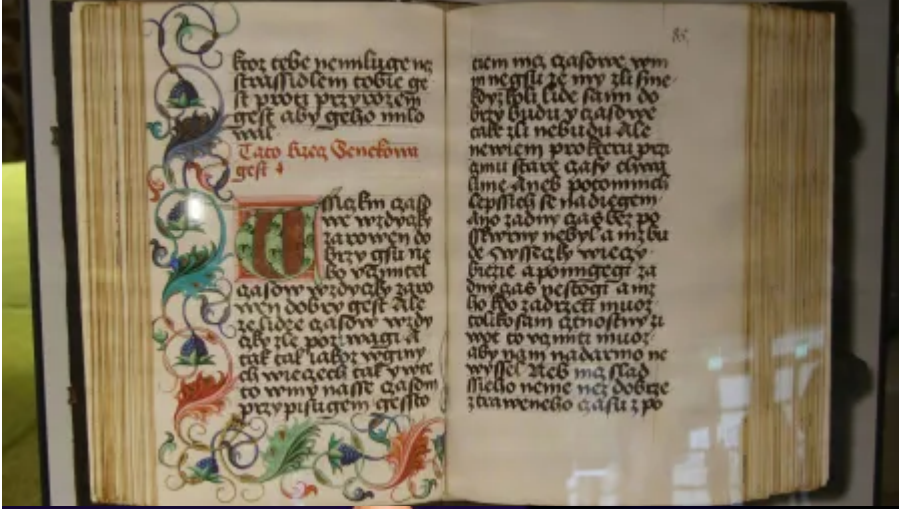 ktoz tebe nemiluge nez
strassidlem toble ge
st proti przyrozem
gest aby geho milo
wal
Tato krzeg Senekowa
gest
ssiczkni czaso
we wzdyczky
zarowen do
brzy gsu ne
bo
czasow wzdyczky zaro
wen dobry gest Ale
ze lidze czasow wzdy
czky zle pozywagi A
tak tak iakoz wginy
ch wieczech tak y wte
to winny nasse czasom
przypisugem gessto
85
tiem
my negsu ze my zli sme
kdyz koli lide sami do
brzy budu y czasowe
take zli nebudu Ale
newiem prokteru przi
czinu stare czasy chwa
lime Aneb potomnich
lepssich se nadiegem
Ano zadny czas bez po
sskwrny nebyl a niz bu
de Swsseczky wieczy
biezie a pomigegi za
dny czas nestogi a niz
ho kdo zadrzeti muoz
toliko sam cztnostny zi
wot to vcziniti muoz
aby nam nadarmo ne
wyssel Neb niz slad
ssieho neme nez dobrze
ztraweneho czasu z po